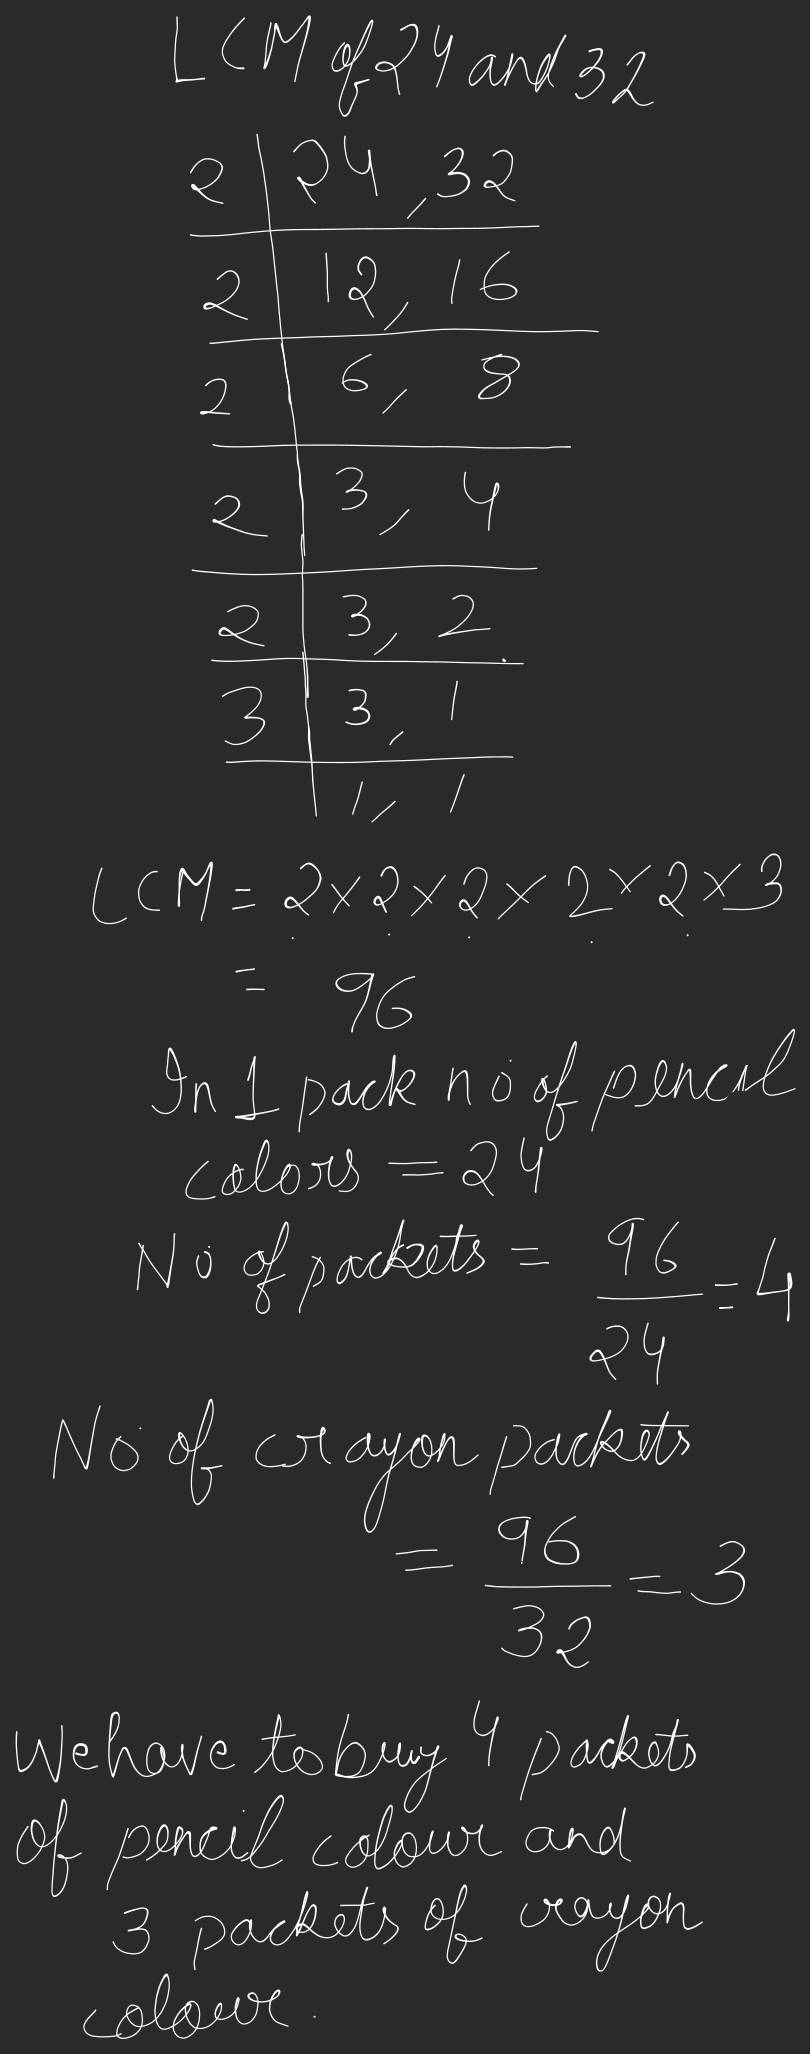 LCM of 24 and 32
2 24, 32
2 12, 16
2 6, 8
2 3, 4
2 3, 2
3 3, 1
1, 1
LCM = 2×2×2×2×2×3
= 96
In 1 pack no of pencil
colors = 24
No of packets = 96/24 = 4
No of crayon packets
= 96/32 = 3
We have to buy 4 packets
of pencil colour and
3 packets of crayon
colour.